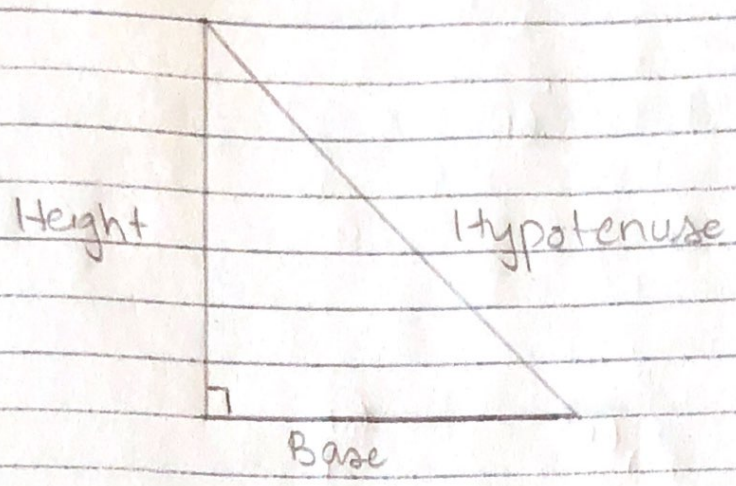 Height
Hypotenuse
Base